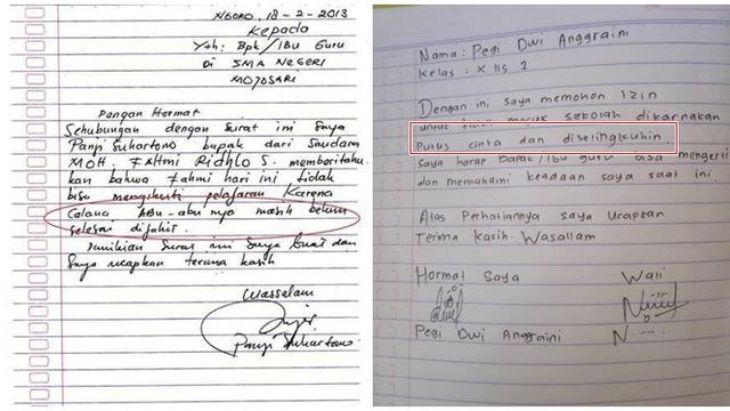 NGORO, 18 - 2 - 2013
Kepada
Yth: Bpk/Ibu Guru
Di SMA NEGERI
MOJOSARI
Dengan Hormat
Sehubungan dengan surat ini Saya
Panji Suhartono bapak dari Saudara
MOH. FAHmi Ridhlo S. memberitahu
kan bahwa Fahmi hari ini tidak
bisa mengikuti pelajaran Karena
Celana ABu-abu nya masih belum
selesai dijahit.
Demikian Surat ini Saya buat dan
Saya ucapkan terima kasih
Wassalam
Panji Suhartono
Nama : Pegi Dwi Anggraini
Kelas : X IIS 2
Dengan ini saya memohon izin
untuk tidak masuk sekolah dikarnakan
Putus cinta dan diselingkuhin.
Saya harap Bapak/Ibu guru bisa mengerti
dan memahami keadaan saya saat ini.
Atas Perhatiannya saya ucapkan
Terima Kasih. Wasallam
Hormat Saya Wali
Pegi Dwi Anggraini